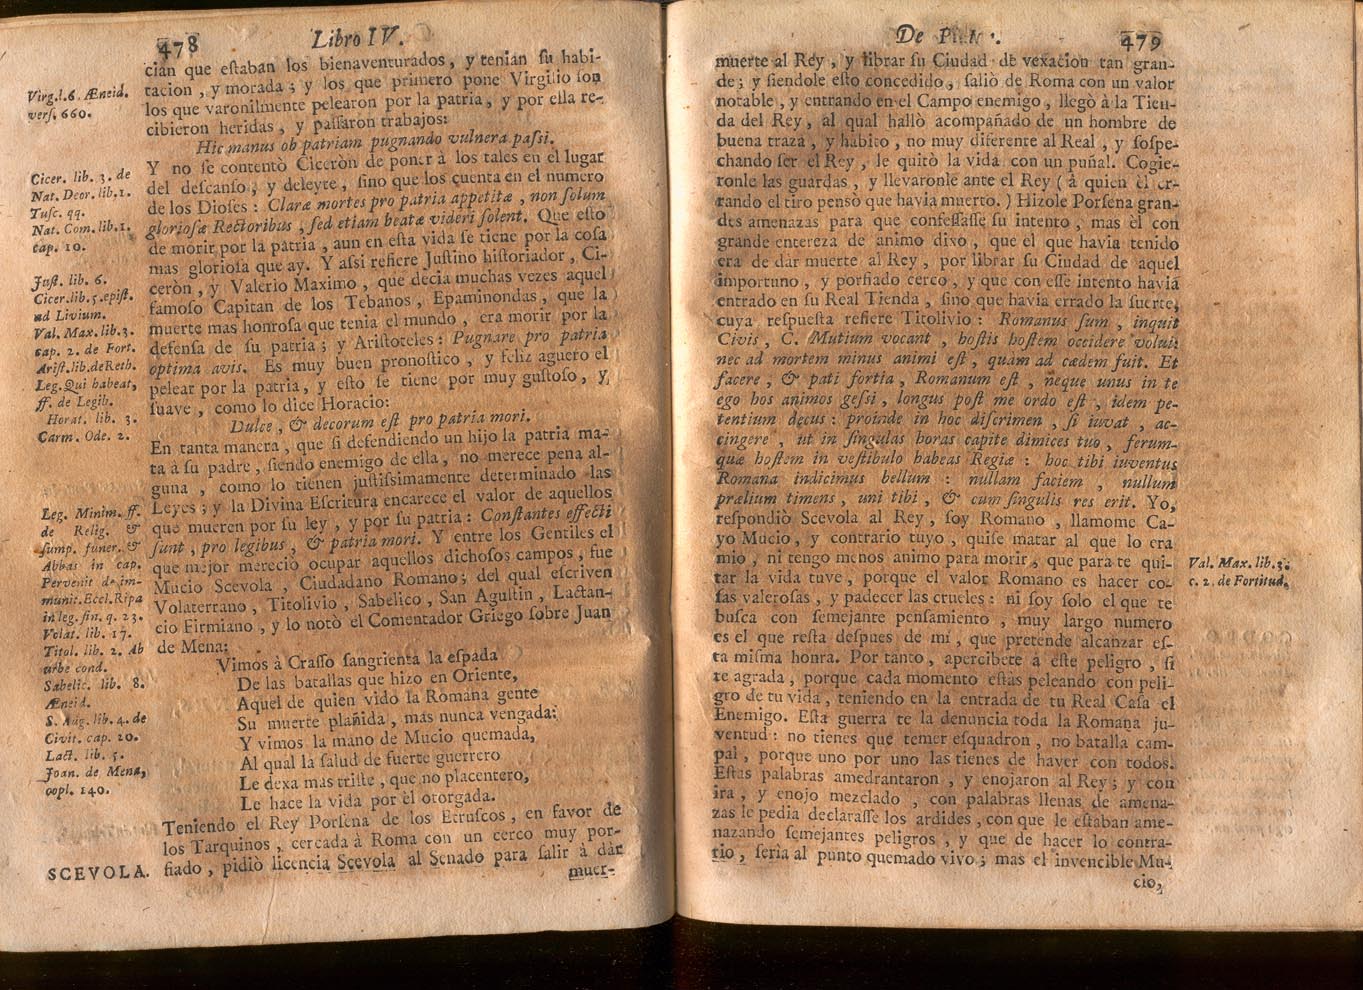 478
Libro IV.
cian que eſtaban los bienaventurados, y tenian ſu habi-
tacion, y morada; y los que primero pone Virgilio ſon
los que varonilmente pelearon por la patria, y por ella re-
cibieron heridas, y paſſaron trabajos:
Hic manus ob patriam pugnando vulnera paſsi.
Y no ſe contentò Ciceròn de poner à los tales en el lugar
del deſcanſo, y deleyte, ſino que los cuenta en el numero
de los Dioſes: Claræ mortes pro patria appetitæ, non ſolum
glorioſæ Rectoribus, ſed etiam beatæ videri ſolent. Que eſto
de morir por la patria, aun en eſta vida ſe tiene por la coſa
mas glorioſa que ay. Y aſsi refiere Juſtino hiſtoriador, Ci-
ceròn, y Valerio Maximo, que decia muchas vezes aquel
famoſo Capitan de los Tebanos, Epaminondas, que la
muerte mas honroſa que tenia el mundo, era morir por la
defenſa de ſu patria; y Ariſtoteles: Pugnare pro patria
optima avis. Es muy buen pronoſtico, y feliz aguero el
pelear por la patria, y eſto ſe tiene por muy guſtoſo, y
ſuave, como lo dice Horacio:
Dulce, & decorum eſt pro patria mori.
En tanta manera, que ſi defendiendo un hijo la patria ma-
ta à ſu padre, ſiendo enemigo de ella, no merece pena al-
guna, como lo tienen juſtiſsimamente determinado las
Leyes; y la Divina Eſcritura encarece el valor de aquellos
que mueren por ſu ley, y por ſu patria: Conſtantes effecti
ſunt, pro legibus, & patria mori. Y entre los Gentiles el
que mejor mereciò ocupar aquellos dichoſos campos, fue
Mucio Scevola, Ciudadano Romano; del qual eſcriven
Volaterrano, Titolivio, Sabelico, San Aguſtin, Lactan-
cio Firmiano, y lo notò el Comentador Griego ſobre Juan
de Mena:
Vimos à Craſſo ſangrienta la eſpada
De las batallas que hizo en Oriente,
Aquel de quien vido la Romana gente
Su muerte plañida, mas nunca vengada:
Y vimos la mano de Mucio quemada,
Al qual la ſalud de fuerte guerrero
Le dexa mas triſte, que no placentero,
Le hace la vida por èl otorgada.
Teniendo el Rey Porſena de los Etruſcos, en favor de
los Tarquinos, cercada à Roma con un cerco muy por-
fiado, pidiò licencia Scevola al Senado para ſalir à dàr
muer-
Virg. l. 6. Æneid.
verſ. 660.
Cicer. lib. 3. de
Nat. Deor. lib. 1.
Tuſc. qq.
Nat. Com. lib. 1.
cap. 10.
Juſt. lib. 6.
Cicer. lib. 5. epiſt.
ad Livium.
Val. Max. lib. 3.
cap. 2. de Fort.
Ariſt. lib. de Reth.
Leg. Qui habeat,
ff. de Legib.
Horat. lib. 3.
Carm. Ode. 2.
Leg. Minim. ff.
de Relig. &
ſump. funer. &
Abbas in cap.
Pervenit de im-
munit. Eccl. Ripa
in leg. fin. q. 23.
Volat. lib. 17.
Titol. lib. 2. Ab
urbe cond.
Sabelic. lib. 8.
Æneid.
S. Aug. lib. 4. de
Civit. cap. 20.
Lact. lib. 5.
Joan. de Mena,
copl. 140.
SCEVOLA.
De
479
muerte al Rey, y librar ſu Ciudad de vexacion tan gran-
de; y ſiendole eſto concedido, ſaliò de Roma con un valor
notable, y entrando en el Campo enemigo, llegò à la Tien-
da del Rey, al qual hallò acompañado de un hombre de
buena traza, y habito, no muy diferente al Real, y ſoſpe-
chando ſer el Rey, le quitò la vida con un puñal. Cogie-
ronle las guardas, y llevaronle ante el Rey (à quien èl er-
rando el tiro pensò que havia muerto.) Hizole Porſena gran-
des amenazas para que confeſſaſſe ſu intento, mas èl con
grande entereza de animo dixo, que el que havia tenido
era de dàr muerte al Rey, por librar ſu Ciudad de aquel
importuno, y porfiado cerco, y que con eſſe intento havia
entrado en ſu Real Tienda, ſino que havia errado la ſuerte,
cuya reſpueſta refiere Titolivio: Romanus ſum, inquit
Civis, C. Mutium vocant, hoſtis hoſtem occidere volui:
nec ad mortem minus animi eſt, quàm ad cædem fuit. Et
facere, & pati fortia, Romanum eſt, neque unus in te
ego hos animos geſsi, longus poſt me ordo eſt, idem pe-
tentium decus: proinde in hoc diſcrimen, ſi iuvat, ac-
cingere, ut in ſingulas horas capite dimices tuo, ferum-
quæ hoſtem in veſtibulo habeas Regiæ: hoc tibi iuventus
Romana indicimus bellum: nullam faciem, nullum
prælium timens, uni tibi, & cum ſingulis res erit. Yo,
reſpondiò Scevola al Rey, ſoy Romano, llamome Ca-
yo Mucio, y contrario tuyo, quiſe matar al que lo era
mio, ni tengo menos animo para morir, que para te qui-
tar la vida tuve, porque el valor Romano es hacer co-
ſas valeroſas, y padecer las crueles: ni ſoy ſolo el que te
buſca con ſemejante penſamiento, muy largo numero
es el que reſta deſpues de mì, que pretende alcanzar eſ-
ta miſma honra. Por tanto, apercibete à eſte peligro, ſi
te agrada, porque cada momento eſtàs peleando con peli-
gro de tu vida, teniendo en la entrada de tu Real Caſa el
Enemigo. Eſta guerra te la denuncia toda la Romana ju-
ventud: no tienes que temer eſquadron, no batalla cam-
pal, porque uno por uno las tienes de haver con todos.
Eſtas palabras amedrantaron, y enojaron al Rey; y con
ira, y enojo mezclado, con palabras llenas de amena-
zas le pedia declaraſſe los ardides, con que le eſtaban ame-
nazando ſemejantes peligros, y que de hacer lo contra-
rio, ſeria al punto quemado vivo; mas el invencible Mu-
cio,
Val. Max. lib. 3.
c. 2. de Fortitud.